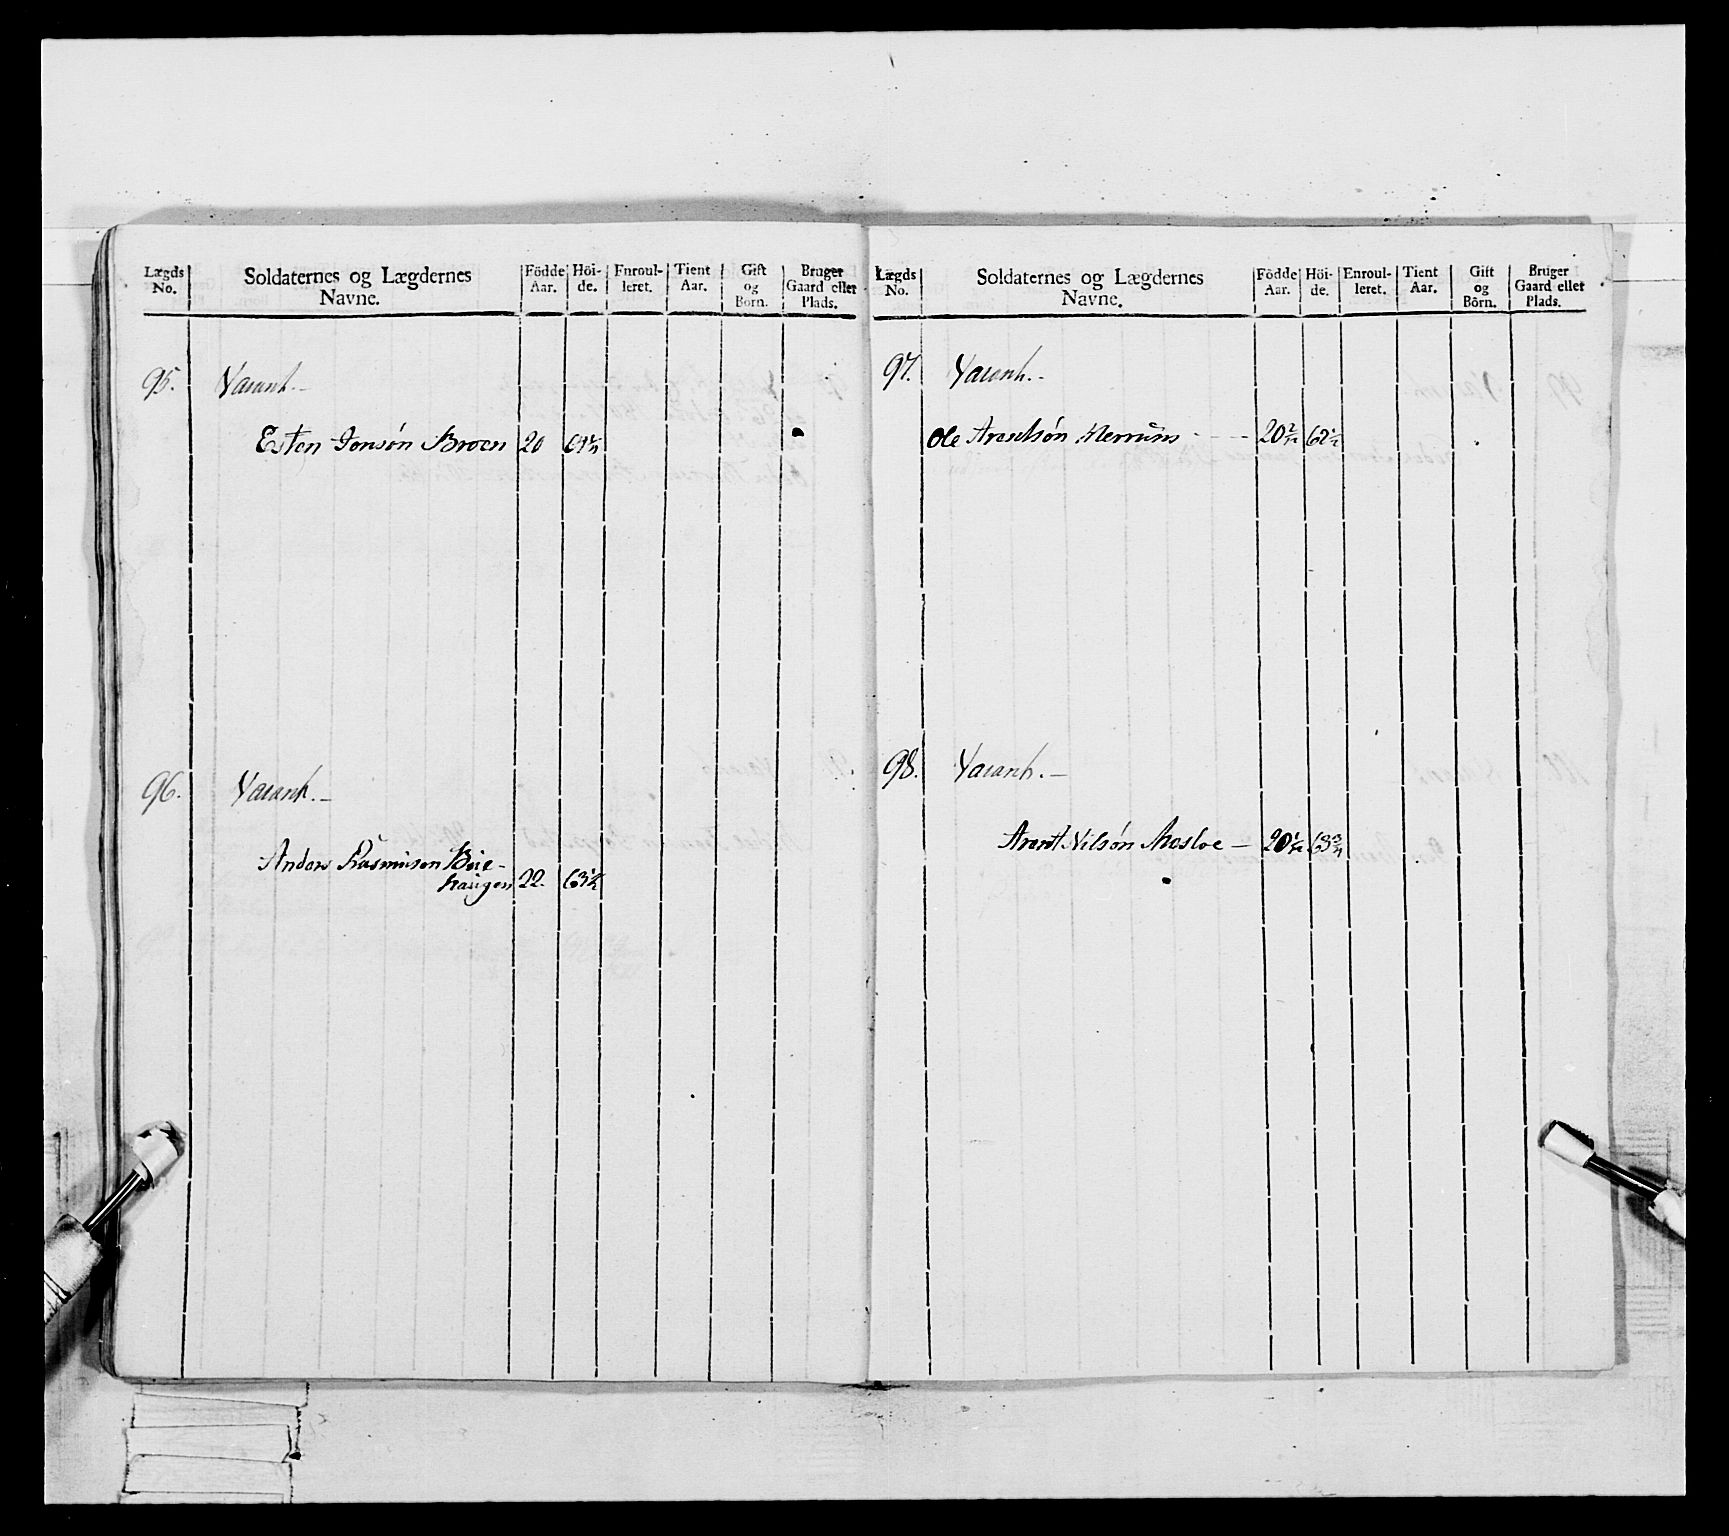 Lægds No.
Soldaternes og Lægdernes Navne.
Födde Aar.
Höi-de.
Enroul-leret.
Tient Aar.
Gift og Börn.
Bruger Gaard eller Plads.
95. Vacant. –
Esten Jonsøn Broen 20
96. Vacant. –
Anders Rasmusen Böe-
haugen 22. 63½
Lægds No.
Soldaternes og Lægdernes Navne.
Födde Aar.
Höi-de.
Enroul-leret.
Tient Aar.
Gift og Börn.
Bruger Gaard eller Plads.
97. Vacant. –
Ole Arentsøn - - -
98. Vacant. –
Arent Nilsøn Mosloe –